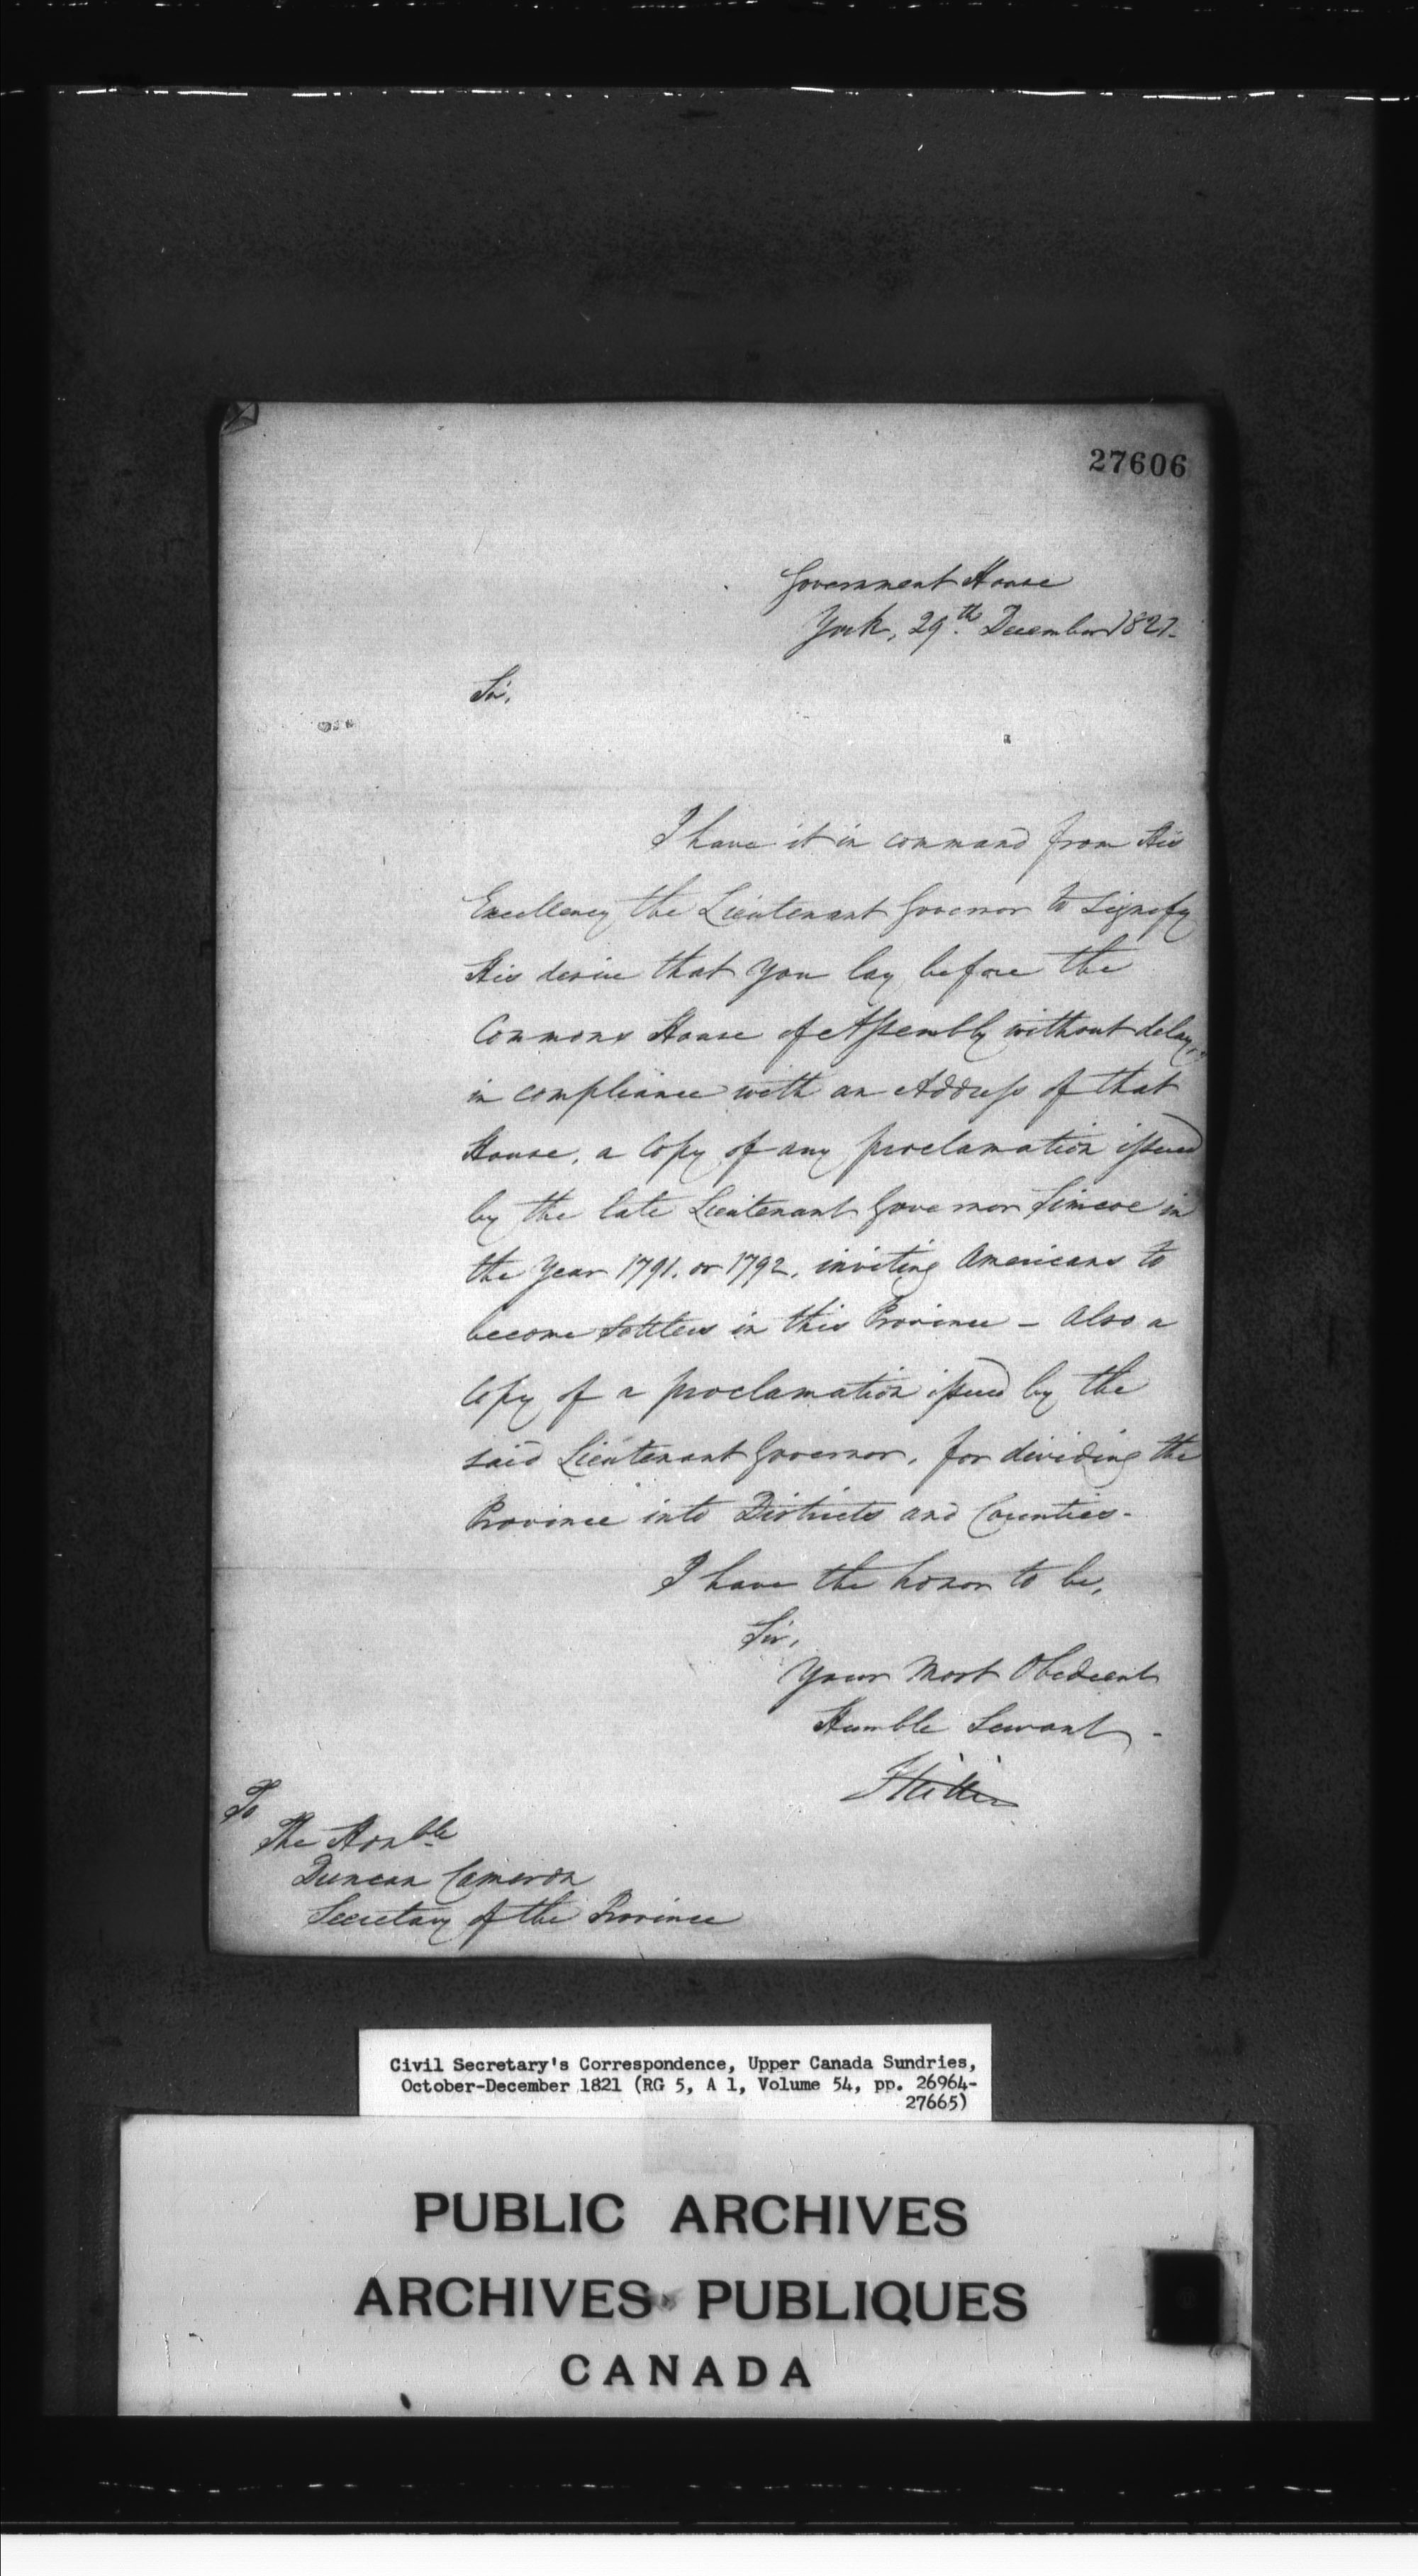 27606
Government House
York, 29th December 1821.
Sir,
I have it in command from His
Excellency the Lieutenant Governor to signify
His desire that you lay before the
Commons House of Assembly without delay,
in compliance with an Address of that
House, a Copy of any proclamation issued
by the late Lieutenant Governor Simcoe in
the Year 1791. or 1792. inviting Americans to
become Settlers in this Province - Also a
Copy of a proclamation issued by the
said Lieutenant Governor, for dividing the
Province into Districts and Counties -
I have the honor to be,
Sir,
Your Most Obedient
Humble Servant -
Hillier
To
The Honble
Duncan Cameron
Secretary of the Province
Civil Secretary's Correspondence, Upper Canada Sundries,
October-December 1821 (RG 5, A 1, Volume 54, pp. 26964-
27665)
PUBLIC ARCHIVES
ARCHIVES PUBLIQUES
CANADA